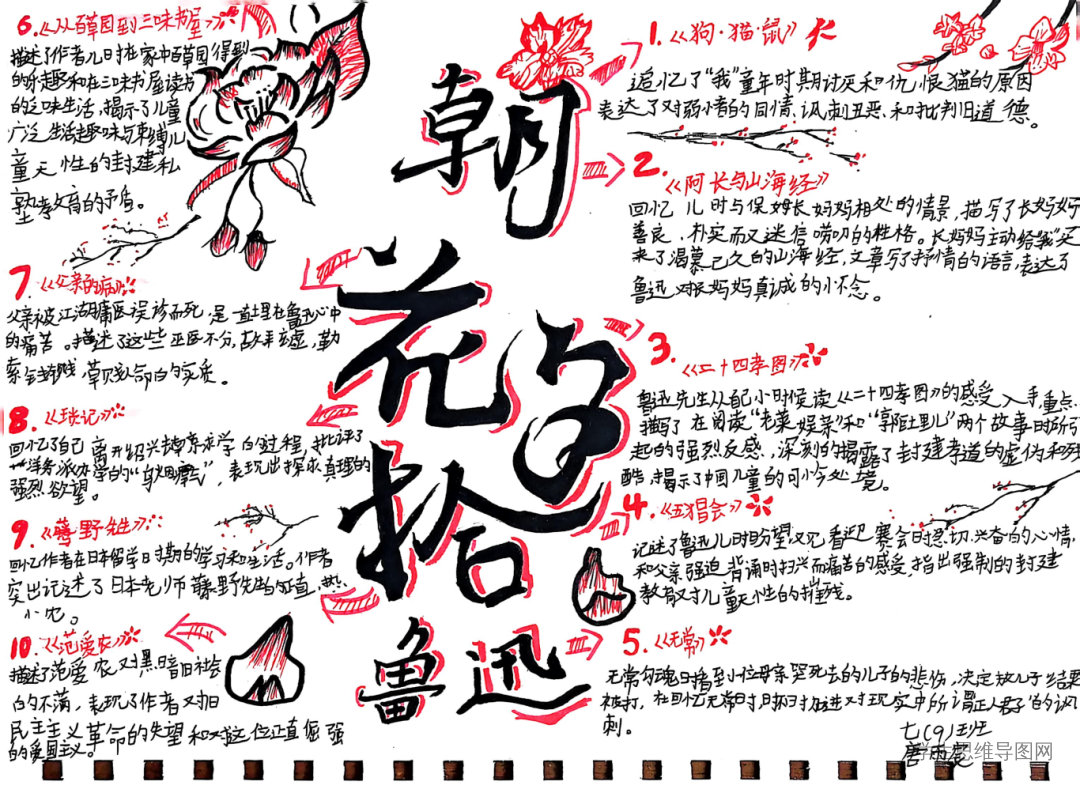 朝花夕拾
鲁迅
1.《狗·猫·鼠》
追忆了“我”童年时期讨厌和仇恨猫的原因
表达了对弱小者的同情、讽刺丑恶、和批判旧道德。
2.
《阿长与山海经》
回忆儿时与保姆长妈妈相处的情景,描写了长妈妈
善良、朴实而又迷信唠叨的性格。长妈妈主动给“我”买
来了渴慕已久的山海经,文章写了抒情的语言,表达了
鲁迅对长妈妈真诚的怀念。
3.
《二十四孝图》
鲁迅先生从自己小时候读《二十四孝图》的感受入手,重点
描写了在阅读“老莱娱亲”和“郭巨埋儿”两个故事时所引
起的强烈反感,深刻的揭露了封建孝道的虚伪和残
酷,揭示了中国儿童的可怜处境。
4.《五猖会》
记述了鲁迅儿时盼望观看迎赛会时急切、兴奋的心情,
和父亲强迫背诵时扫兴而痛苦的感受,指出强制的封建
教育对儿童天性的摧残。
5.《无常》
无常勾魂日
的悲伤,决定放儿子结果
被打,在回忆无常时,时不时加进对现实中所谓正人君子的讽
刺。
6.《从百草园到三味书屋》
描述作者儿时在家中百草园得到
的乐趣和在三味书屋读书
的乏味生活,揭示了儿童
广泛生活趣味与束缚儿
童天性的封建私
塾教育的矛盾。
7.《父亲的病》
父亲被江湖庸医误诊而死,是一直埋在鲁迅心中
的痛苦。描述了这些巫医不分,故弄玄虚,勒
索金钱,草菅人命的实质。
8.《琐记》
回忆了自己离开绍兴去南京求学的过程,批评了
洋务派办学的“乌烟瘴气”,表现出探求真理的
强烈欲望。
9.《藤野先生》
回忆作者在日本留学时期的学习和生活。作者
突出记述了日本老师藤野先生的正直、热
心。
10.《范爱农》
描述了范爱农对黑暗旧社会
的不满,表现了作者对旧
民主主义革命的失望和对这位正直倔强
的爱国主义。
七(9)班
思维导图网